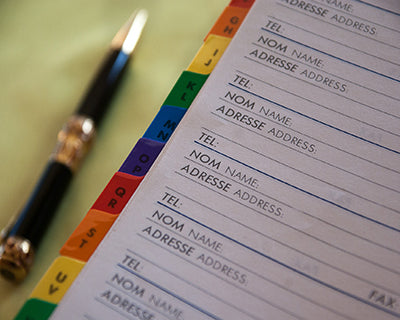 ADRESSE ADDRESS:
TEL:
NOM NAME:
ADRESSE ADDRESS:
TEL:
NOM NAME:
ADRESSE ADDRESS:
TEL:
NOM NAME:
ADRESSE ADDRESS:
TEL:
NOM NAME:
ADRESSE ADDRESS:
FAX:
TEL:
NOM NAME:
ADRESSE ADDRESS:
FAX
GH
IJ
KL
MN
OP
QR
ST
UV